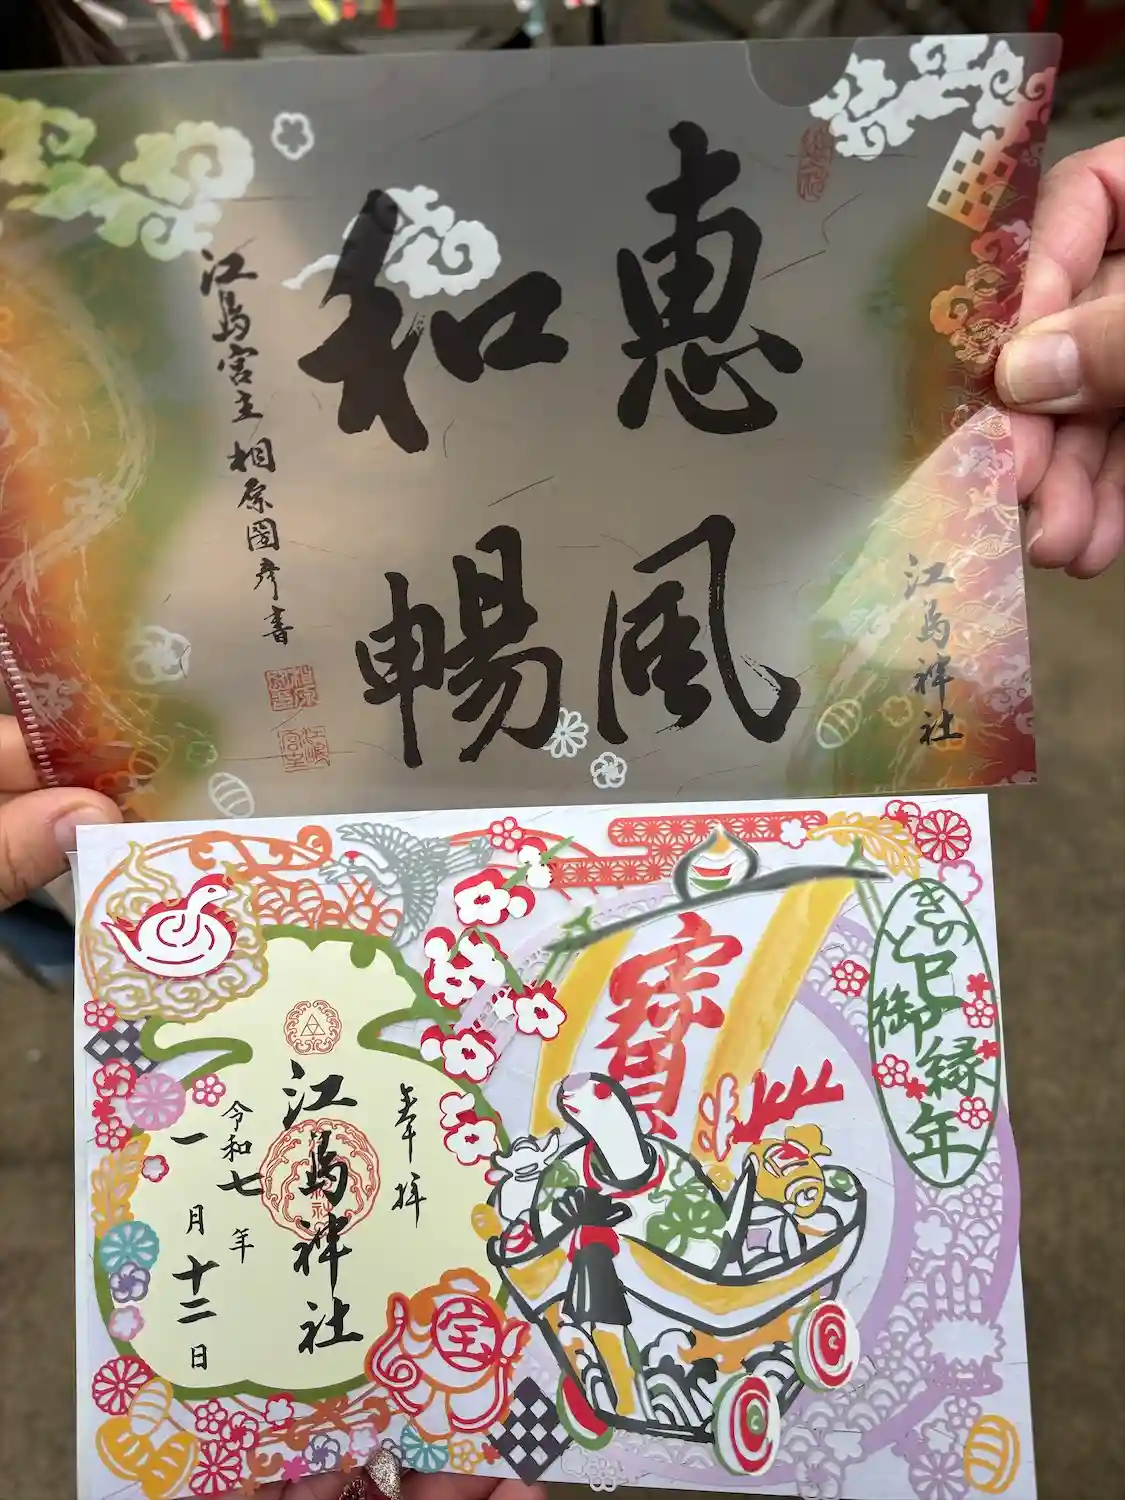 惠風
和暢
江島宮主 相原圀彦書
江島神社
きのと巳
御縁年
寳
奉拝
江島神社
令和七年
一月十二日
宝